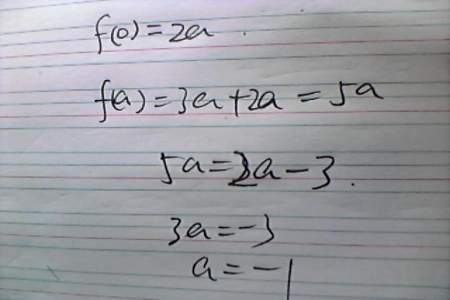 f(0)=2a.
f(a)=3a+2a=5a
5a=2a-3.
3a=-3
a=-1